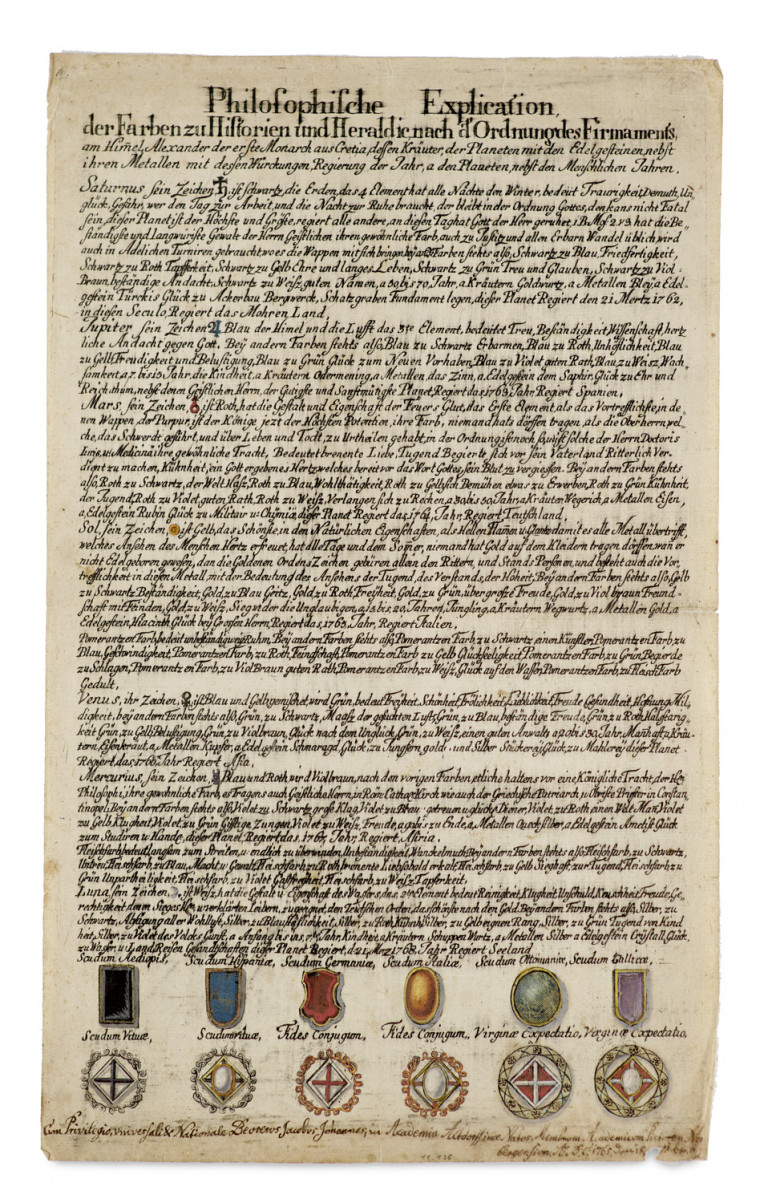 Philosophische Explication,
der Farben zu Historien und Heraldic, nach d'Ordnung des Firmaments,
am Himel, Alexander der erste Monarch aus Cretia, dessen Kräuter, der Planeten mit den Edelgesteinen, nebst
ihren Metallen mit dessen Würckungen, Regierung der Jahr, a den Planeten, nebst den Menschlichen Jahren.
Saturnus, sein Zeichen ♄, ist schwartz, die Erden, das 4 Element hat alle Nächte den Winter, bedeut Traurigkeit, Demuth, Un-
glück, Gefahr, wer den Tag zur Arbeit, und die Nacht zur Ruhe braucht, der bleibt in der Ordnung Gottes, den kans nicht Fatal
sein, dieser Planet ist der Höchste und Größe, regiert alle andere, an diesen Tag hat Gott der Herr geruhet, 1 B. Mos 2 v 3 hat die Be-
ständigste und Langwürigste Gewalt der Herrn Geistlichen ihren gewöhnliche Farb, auch zu Justitz und allen Erbarn Wandel üblich, wird
auch in Adelichen Turniren gebraucht, wo es die Wappen mit sich bringen, bey andern Farben stehts also, Schwartz zu Blau, Friedfertigkeit,
Schwartz zu Roth Tapfferkeit, Schwartz zu Gelb Ehre und langes Leben, Schwartz zu Grün Treu und Glauben, Schwartz zu Viol-
Braun, beständige Andacht, Schwartz zu Weiß, guten Namen, a 50 bis 70, Jahr, a Kräutern Goldwurtz, a Metallen Bley, a Edel-
gestein Türckis Glück zu Ackerbau Bergwerck, Schatz graben Fundament legen, dieser Planet Regiert den 21 Mertz 1762,
in diesen Seculo, Regiert das Mohren Land,
Jupiter sein Zeichen ♃ Blau der Himel und die Lufft das 3te Element, bedeütet Treu, Beständigkeit, Wissenschaft, hertz-
liche Andacht gegen Gott. Bey andern Farben stehts also, Blau zu Schwartz Erbarmen, Blau zu Roth, Unhöflichkeit, Blau
zu Gelb, Freudigkeit und Belustigung, Blau zu Grün, Glück zum Neuen Vorhaben, Blau zu Violet guten Rath, Blau zu Weisz, Wach-
samkeit, a 7. bis 15 Jahr, die Kindheit, a Kräutern Odermening, a Metallen, das Zinn, a. Edelgestein dem Saphir, Glück zu Ehr und
Reichthum, nebst denen Geistlichen Herrn, der Gutigste und Sanftmütigste Planet, Regiert, das 1763 Jahr Regiert Spanien,
Mars, sein Zeichen, ♂ ist Roth, hat die Gestalt und Eigenschaft der Feuers Glut, das Erste Element, als das Vortrefflichste, in de-
nen Wappen, der Purpur, ist der Könige jezt der Höchsten Potention, ihre Farb, niemand hats dörffen tragen, als die Oberherrn, wel-
che, das Schwerdt geführt, und über Leben und Todt, zu Urtheilen gehabt, in der Ordnung ist noch so, wist solche der Herrn Doctoris
Juris, u. Medicinä ihre gewöhnliche Tracht, Bedeütet brenente Liebe, Tugend Begierte sich vor sein Vaterland Ritterlich Ver-
dient zu machen, Kühnheit, ein Gott ergebenes Hertz, welches bereit vor das Wort Gottes, sein Blut zu vergiessen. Bey andern Farben stehts
also, Roth zu Schwartz, der Welt Hass, Roth zu Blau, Wohlthätigkeit, Roth zu Gelb, sich Bemühen etwas zu Erwerben, Roth zu Grün Kühnheit,
der Jugend, Roth zu Violet, guten Rath, Roth zu Weiß, Verlangen sich zu Rechen, a 30 bis 50 Jahr, a Kräuten Wegerich, a Metallen Eisen,
a, Edelgestein Rubin, Glück zu Militair u. Chÿmiæ, dieser Planet Regiert das 1764 Jahr, Regiert Teutschland.
Sol, sein Zeichen, ☉ ist Gelb, das Schönste, in den Natürlichen Eigenschaften, als Hellen Flamen u. Glantz damit es alle Metall übertrifft,
welches Ansehen des Menschen Hertz erfreuet, hat alle Tage und dem Somer, niemand hat Gold auf dem Kleidern tragen dörffen, wan er
nicht Edel geboren gewesen, dan die Goldenen Ordens Zeichen gebüren allein den Rittern, und Stands Personen, und besteht auch die Vor-
trefflichkeit in diesen Metall, mit der Bedeutung des Ansehens der Tugend, des Verstands, der Hoheit, Bey andern Farben stehts also, Gelb
zu Schwartz Beständigkeit, Gold, zu Blau Geitz, Gold, zu Roth, Freyheit, Gold, zu Grün, über große Freude, Gold, zu Violbraun Freund-
schaft mit Feinden, Gold, zu Weiß, Sieg wider die Unglaubigen, a 15 bis 20, Jahren, Jüngling, a Kräutern Wegwurtz, a Metallen Gold, a
Edelgestein, Hiacinth, Glück bey Großen Herrn, Regiert das, 1765, Jahr, Regiert Italien,
Pomerantzen Farb, bey andern Farben stehts also, Pomerantzen Farb, zu Schwartz einen Künstler, Pomerantzen Farb, zu
Blau, Geschwindigkeit, Pomerantzen Farb, zu Roth, Feindschaft, Pomerantzen Farb zu Gelb Glückseligkeit Pomerantzen Farb, zu Grün Begierde
zu Schlagen, Pomerantzen Farb, zu Viol Braun guten Rath, Pomerantzen Farb, zu Weiß, Glück auf den Wasser, Pomerantzen Farb, zu Fleisch Farb
Gedult,
Venus, ihr Zeichen, ♀, ist Blau und Gelb gemischet, wird Grün, bedeut Freyheit, Schönheit, Frölichkeit, Liebligkeit, Freude, Gesundheit, Hofnung, Mil-
digkeit, bey andern Farben stehts also, Grün, zu Schwartz, Maase der gesuchten Lust, Grün, zu Blau, beständige Freude, Grün, zu Roth, Halsstarig-
keit, Grün, zu Gelb, Belustigung, Grün, zu Violbraun, Glück nach dem Unglück, Grün, zu Weiß, einen guten Anwalt, a 20 bis 30 Jahr, Manhaft, a Kräu-
tern, Eisenkraut, a, Metallen Kupffer, a Edelgestein Schmaragd, Glück, zu Jungfern, gold- und Silber Stückerey, Glück, zu Mahlerey, dieser Planet
Regiert, das 1766 Jahr Regiert Asia.
Mercurius, sein Zeichen, ☿ Blau und Roth, wird Violbraun, nach dem vorigen Farben, etliche haltens vor eine Königliche Tracht, der Hey-
Philosophi, ihre gewöhnliche Farb, es Tragens auch Geistliche Herrn, in Röm Cathor Kirch, wie auch der Griechische Patriarch, u. Obriste Priester in Constan-
tinopel, Bey andern Farben stehts also, Violet zu Schwartz große Klag, Violet zu Blau, getreuen u. glückl. Diener, Violet, zu Roth einen Welt Man, Violet
zu Gelb, Klugheit, Violet zu Grün Gifftige Zungen, Violet zu Weiß, Freude, a 70 bis zu Ende, a, Metallen Queck silber, a Edelgestein Ametist, Glück
zum Studiren u. Handel, dieser Planet, Regiert, das 1767, Jahr Regiert, Asiria.
Fleischfarb, bedeüt, langsam zum Streiten, u. endlich zu überwinden, Unbeständigkeit, Wanckelmuth, Bey andern Farben stehts also, Fleischfarb, zu Schwartz,
Untreu, Fleischfarb, zu Blau, Macht u. Gewalt, Fleischfarb, zu Roth, brenente Liebs bald erkalt, Fleischfarb, zu Gelb Sieghaft, zur Tugend, Fleischfarb, zu
Grün Unpartheiligkeit, Fleischfarb, zu Violet Gastfreyheit, Fleischfarb, zu Weiß, Tapferkeit,
Luna, sein Zeichen, ☽, ist Weiß, hat die Gestalt u. Eigenschaft des Wassers, des 2ten Element, bedeut Reinigkeit, Klugheit, Unschuld, Keuschheit, Freude, Ge-
rechtigkeit, denen Siegs u. verklärten Leibern, zu geeignet, den Teütschen Orden, das schönste nach den Gold, Bey andern Farben stehts also, Silber, zu
Schwartz, Absagung aller Wohllust, Silber, zu Blau, Höflichkeit, Silber, zu Roth, Kühnh. Silber, zu Gelb, eignen Rang, Silber, zu Grün, Tugend von Kind-
heit, Silber, zu Violet des Volcks Gunst, a Anfang bis ins, 7te Jahr, Kindheit, a Kräutern, Schuppen Wurtz, a Metallen Silber a Edelgestein Crystall, Glück,
zu Wasser u. Land Reisen, Gesandschafften dieser Planet Regiert, d. 21, Mrz 1768, Jahr Regiert Seeland
Scudum Aediopis, Scudum Hispaniæ, Scudum Germaniæ, Scudum Italiæ, Scudum Ottomaniæ, Scudum Gallicæ,
Scudum Vituæ, Scudum Vituæ, Fides Conjugum, Fides Conjugum, Virginæ Expectatio, Virginæ Expectatio,
Cum Privilegio, Universali & Nationale Beoterus, Jacobus Johannes, in Academia Altdorffinæ Natus, Membrum Academicum